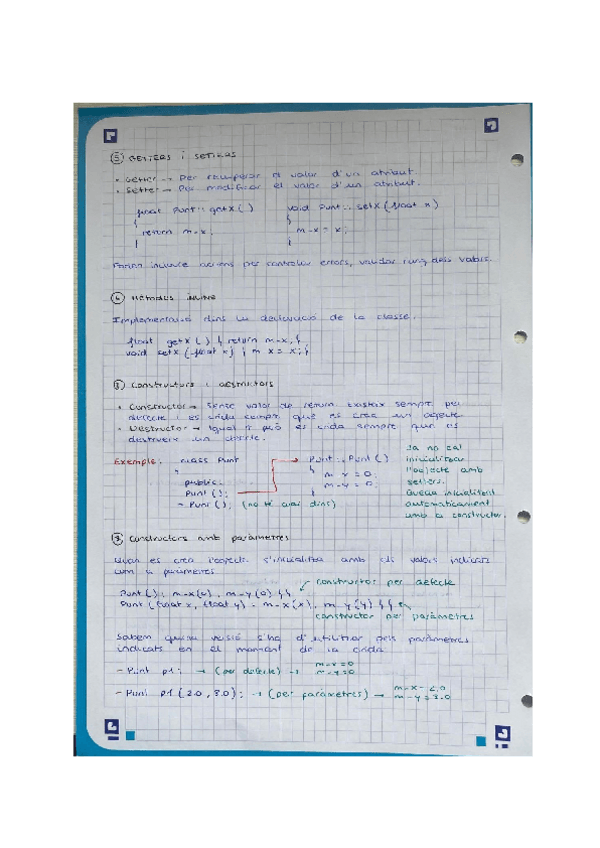 ⑤ GETTERS i SETTERS
• Getter → Per recuperar el valor d'un atribut.
• Setter → Per modificar el valor d'un atribut.
float Punt::getX() void Punt::setX(float x)
{ {
return m-x; m-x = x;
} }
Poden incloure accions per controlar errors, validar rang dels valors.
⑥ Mètodes inline
Implementació dins la declaració de la classe.
float getX() { return m-x; }
void setX(float x) { m x = x; }
Constructors i destructors
• Constructor → Sense valor de return. Existeix sempre per
defecte i es crida sempre que es crea un objecte
• Destructor → Igual però es crida sempre que es
destrueix un objecte.
Exemple: class Punt
{
public:
Punt();
~Punt(); (no té codi dins)
Punt::Punt()
{
m-x=0;
m-y=0;
}
Ja no cal
inicialitzar
l'objecte amb
setters.
Queda inicialitzat
automàticament
amb el constructor.
⑧ Constructors amb paràmetres
Quan es crea l'objecte s'inicialitza amb els valors indicats
com a paràmetres.
constructor per defecte
Punt(): m-x{0}, m-y{0} {}
Punt(float x, float y): m-x{x}, m-y{y} {}
constructor per paràmetres
Sabem quina versió s'ha d'utilitzar pels paràmetres
indicats en el moment de la crida.
- Punt p1; → (per defecte) → m-x=0
m-y=0
- Punt p1(2.0, 3.0); → (per paràmetres) → m-x=2.0
m-y=3.0